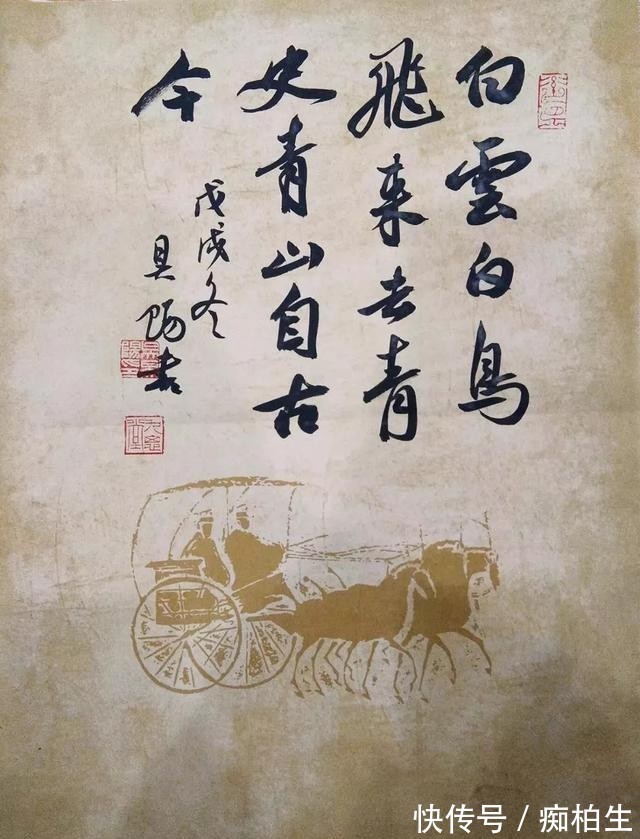 白雲白鳥
飛来去青
史青山自古
今
戊戌冬
吴旸书
快传号 / 痴柏生